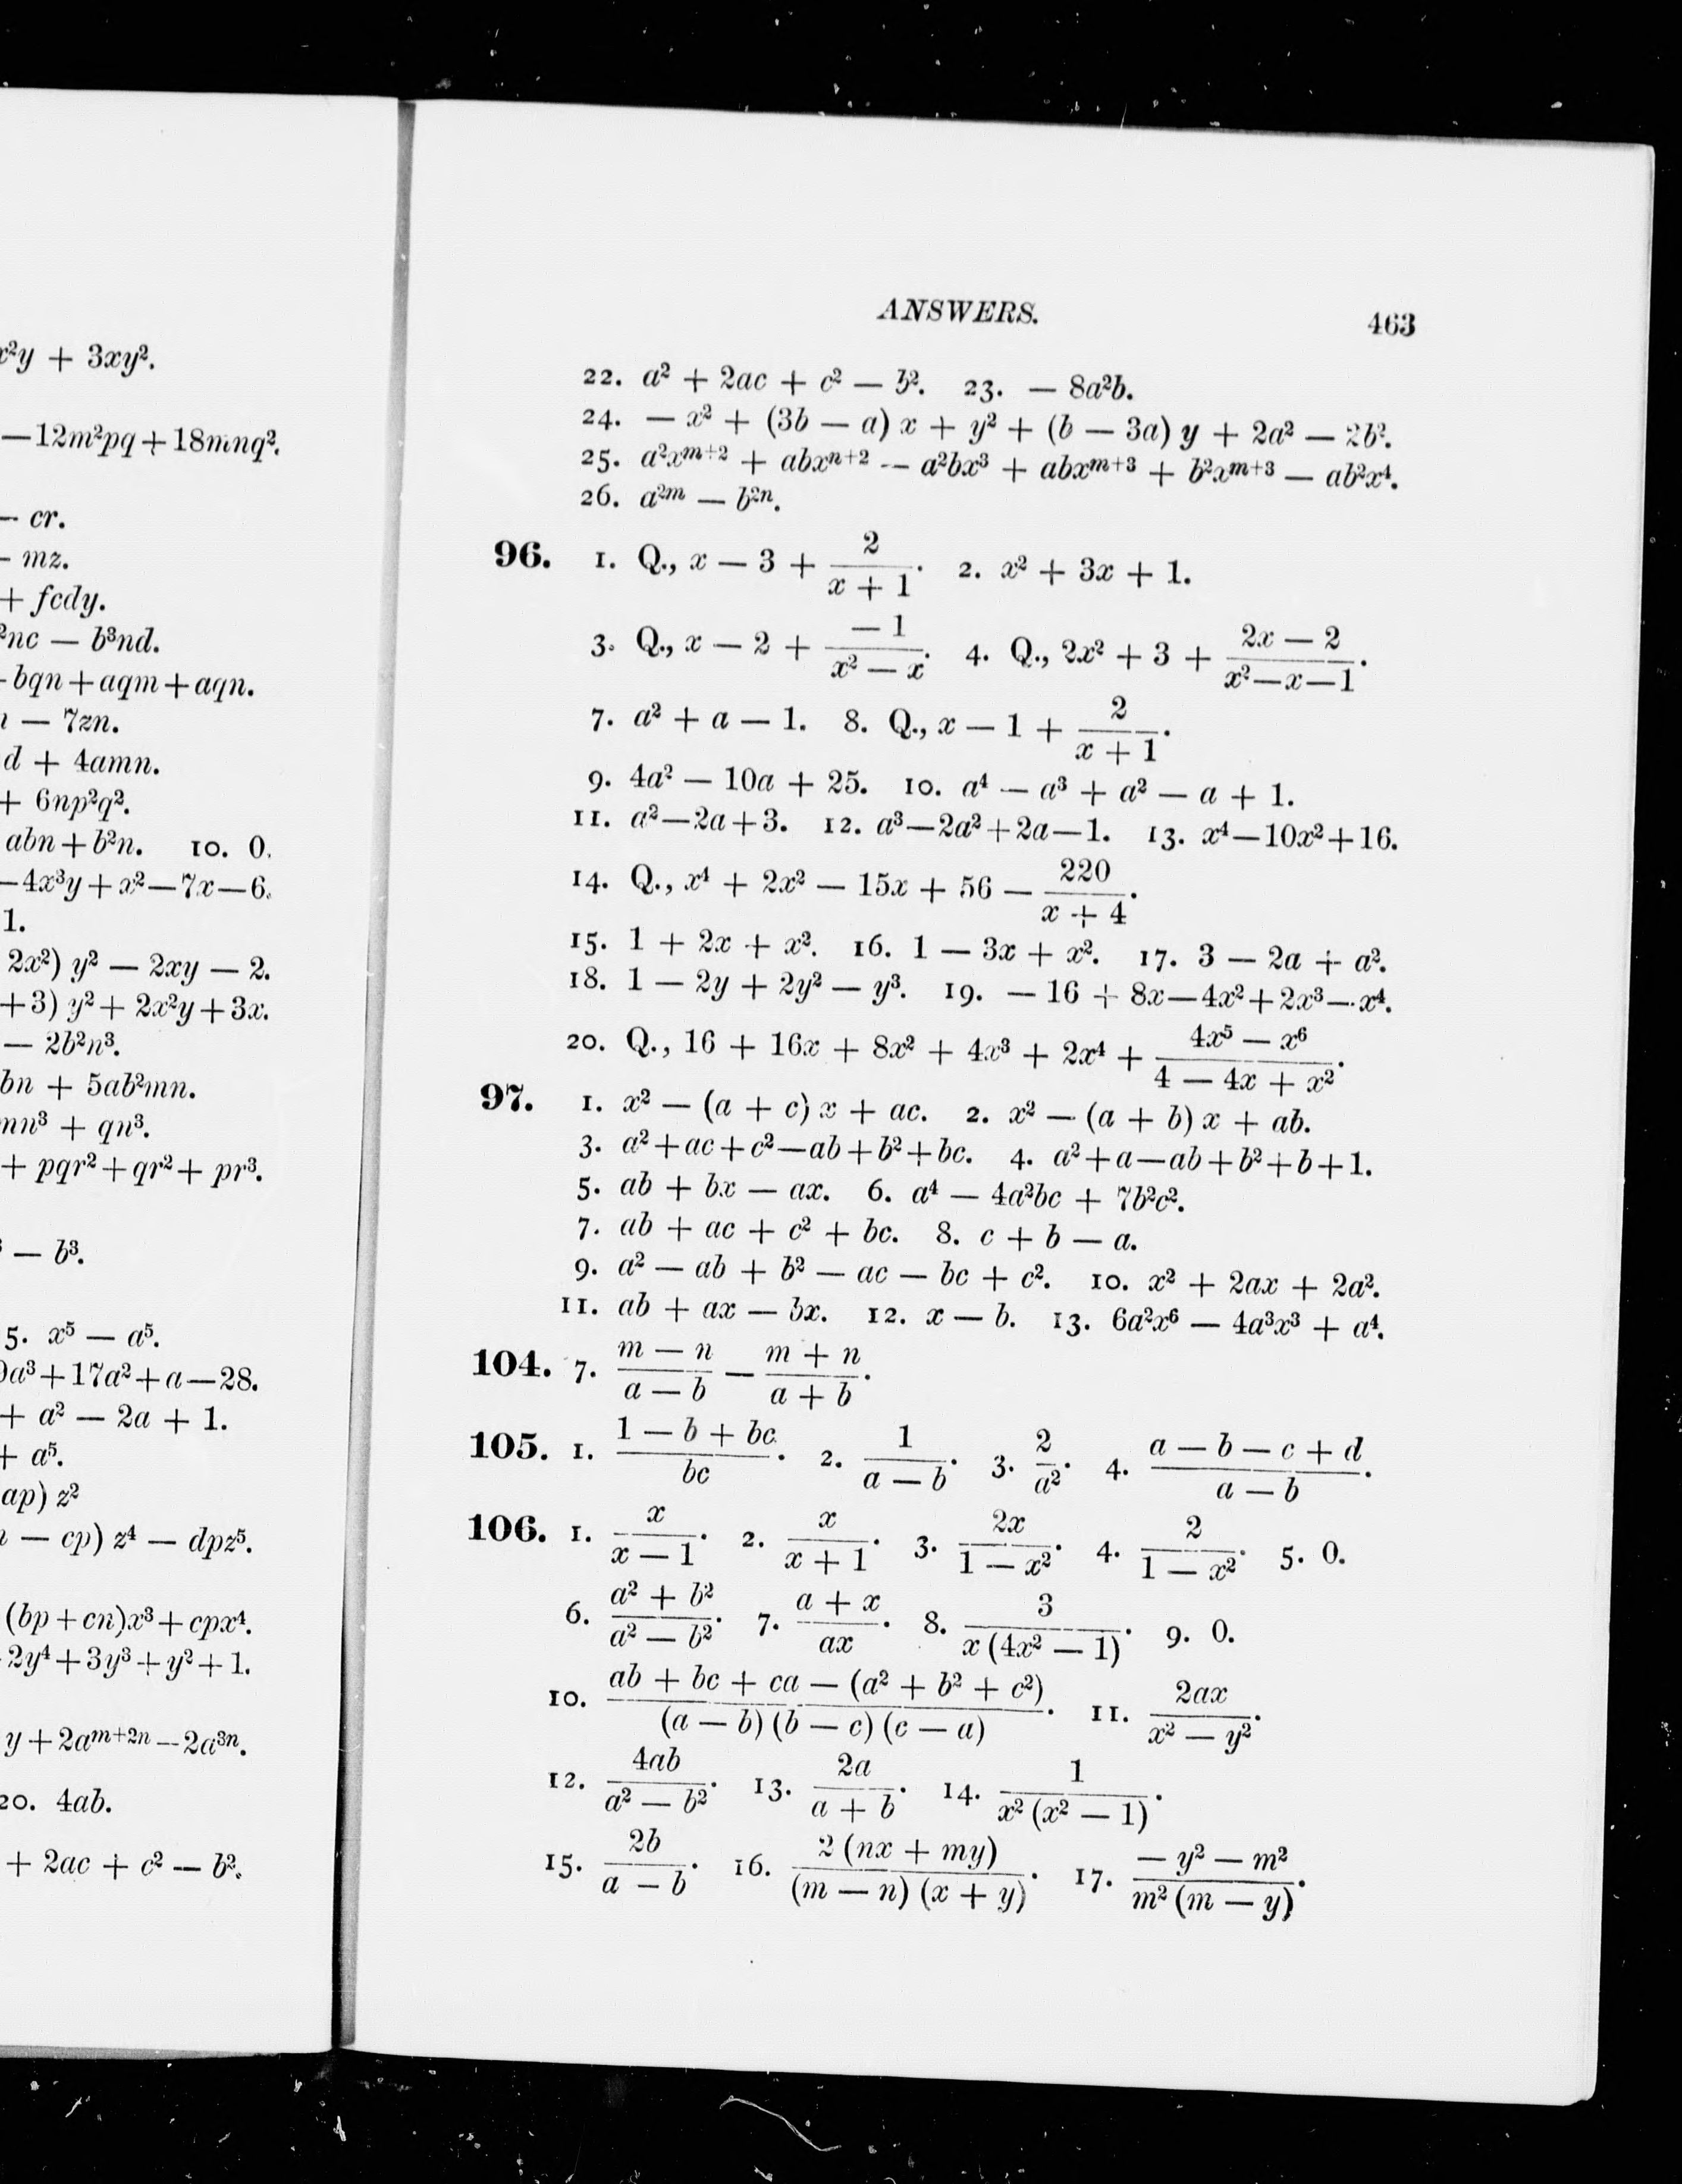 x²y + 3xy².
—12m²pq+18mnq².
— cr.
— mz.
+ fcdy.
²nc — b³nd.
bqn+aqm+aqn.
— 7zn.
d + 4amn.
+ 6np²q².
abn+b²n. 10. 0.
—4x³y+x²—7x—6.
1.
2x²) y² — 2xy — 2.
+3) y²+ 2x²y+3x.
— 2b²n³.
bn + 5ab²mn.
mn³ + qn³.
+ pqr²+qr²+ pr³.
— b³.
5. x⁵ — a⁵.
a³+17a²+a—28.
+ a² — 2a + 1.
+ a⁵.
ap) z²
— cp) z⁴ — dpz⁵.
(bp+cn)x³+cpx⁴.
2y⁴+3y³+y²+1.
y+2aᵐ⁺²ⁿ—2a³ⁿ.
20. 4ab.
+ 2ac + c² — b².
ANSWERS. 463
22. a² + 2ac + c² — b². 23. — 8a²b.
24. — x² + (3b — a) x + y² + (b — 3a) y + 2a² — 2b².
25. a²xᵐ⁺² + abxⁿ⁺² — a²bx³ + abxᵐ⁺³ + b²xᵐ⁺³ — ab²x⁴.
26. a²ᵐ — b²ⁿ.
96. 1. Q., x — 3 + 2/(x + 1). 2. x² + 3x + 1.
3. Q., x — 2 + (— 1)/(x² — x). 4. Q., 2x² + 3 + (2x — 2)/(x²—x—1).
7. a² + a — 1. 8. Q., x — 1 + 2/(x + 1).
9. 4a² — 10a + 25. 10. a⁴ — a³ + a² — a + 1.
11. a²—2a+3. 12. a³—2a²+2a—1. 13. x⁴—10x²+16.
14. Q., x⁴ + 2x² — 15x + 56 — 220/(x + 4).
15. 1 + 2x + x². 16. 1 — 3x + x². 17. 3 — 2a + a².
18. 1 — 2y + 2y² — y³. 19. — 16 + 8x—4x²+2x³—x⁴.
20. Q., 16 + 16x + 8x² + 4x³ + 2x⁴ + (4x⁵ — x⁶)/(4 — 4x + x²).
97. 1. x² — (a + c) x + ac. 2. x² — (a + b) x + ab.
3. a²+ac+c²—ab+b²+bc. 4. a²+a—ab+b²+b+1.
5. ab + bx — ax. 6. a⁴ — 4a²bc + 7b²c².
7. ab + ac + c² + bc. 8. c + b — a.
9. a² — ab + b² — ac — bc + c². 10. x² + 2ax + 2a².
11. ab + ax — bx. 12. x — b. 13. 6a²x⁶ — 4a³x³ + a⁴.
104. 7. (m — n)/(a — b) — (m + n)/(a + b).
105. 1. (1 — b + bc)/(bc). 2. 1/(a — b). 3. 2/a². 4. (a — b — c + d)/(a — b).
106. 1. x/(x — 1). 2. x/(x + 1). 3. 2x/(1 — x²). 4. 2/(1 — x²). 5. 0.
6. (a² + b²)/(a² — b²). 7. (a + x)/(ax). 8. 3/(x (4x² — 1)). 9. 0.
10. (ab + bc + ca — (a² + b² + c²))/((a — b) (b — c) (c — a)). 11. 2ax/(x² — y²).
12. 4ab/(a² — b²). 13. 2a/(a + b). 14. 1/(x² (x² — 1)).
15. 2b/(a — b). 16. 2 (nx + my)/((m — n) (x + y)). 17. (— y² — m²)/(m² (m — y)).